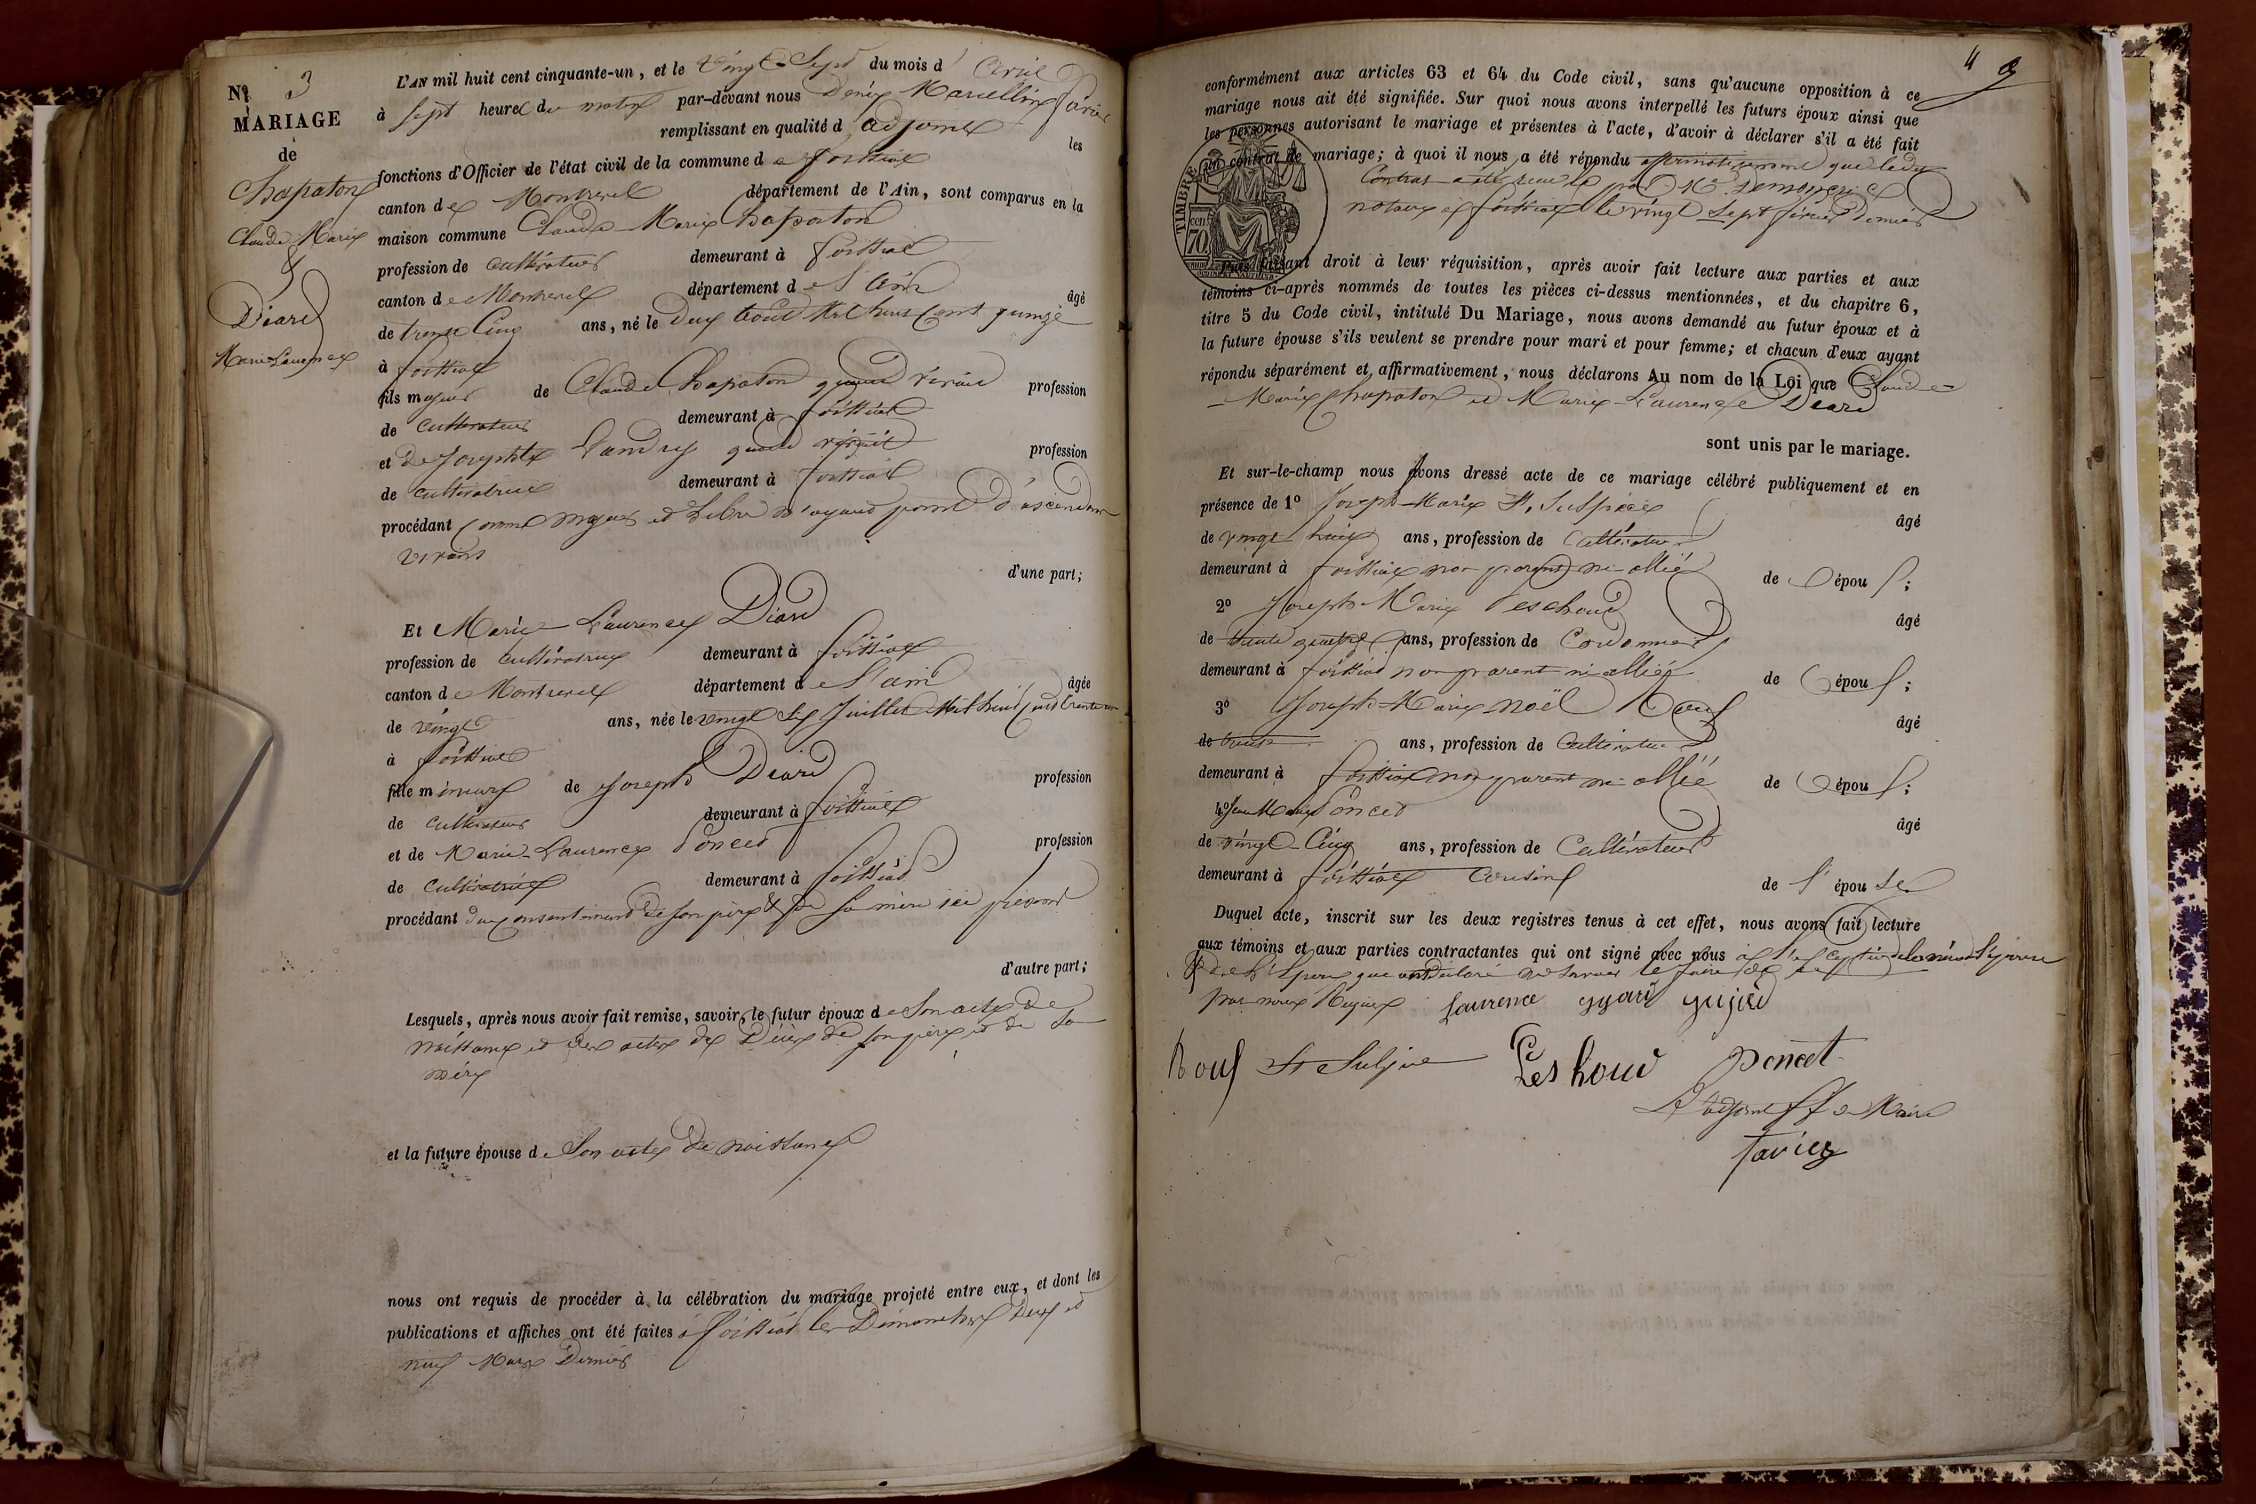 N° 3
MARIAGE
de
Chapaton
Claude Marie
&
Diard
Marie Laurence
L'AN mil huit cent cinquante-un, et le vingt-Sept du mois d' avril
à sept heures du matin par-devant nous Denis Marcellin Favier
remplissant en qualité d'adjoint les
fonctions d'Officier de l'état civil de la commune de foissiat
canton de Montrevel département de l'Ain, sont comparus en la
maison commune Claude-Marie Chapaton
profession de cultivateur demeurant à foissiat
canton de Montrevel département de l'ain âgé
de trente cinq ans, né le deux août Mil huit cent quinze
à foissiat
fils majeur de Claude Chapaton quand vivait profession
de cultivateur demeurant à foissiat
et de Josephte Pandry quand vivait profession
de cultivatrice demeurant à foissiat
procédant comme majeur et Libre n'ayant point d'ascendans
vivans
d'une part;
Et Marie Laurence Diard
profession de cultivatrice demeurant à foissiat
canton de Montrevel département de l'ain âgée
de vingt ans, née le vingt six Juillet Mil huit cent trente
à foissiat
fille mineure de Joseph Diard profession
de cultivateur demeurant à foissiat
et de Marie-Laurence Poncet profession
de cultivatrice demeurant à foissiat
procédant du consentement de son père & de sa mère ici présent
d'autre part;
Lesquels, après nous avoir fait remise, savoir, le futur époux de son acte de
naissance et des actes de Décès de son père et de sa
mère
et la future épouse de son acte de naissance
nous ont requis de procéder à la célébration du mariage projeté entre eux, et dont les
publications et affiches ont été faites à foissiat les Dimanches deux et
neuf Mars Dernier
4
conformément aux articles 63 et 64 du Code civil, sans qu'aucune opposition à ce
mariage nous ait été signifiée. Sur quoi nous avons interpellé les futurs époux ainsi que
les personnes autorisant le mariage et présentes à l'acte, d'avoir à déclarer s'il a été fait
un contrat de mariage; à quoi il nous a été répondu affirmativement que ledit
Contrat a été reçu par Me
notaire à foissiat le vingt Sept février Dernier
TIMBRE
70
puis faisant droit à leur réquisition, après avoir fait lecture aux parties et aux
témoins ci-après nommés de toutes les pièces ci-dessus mentionnées, et du chapitre 6,
titre 5 du Code civil, intitulé Du Mariage, nous avons demandé au futur époux et à
la future épouse s'ils veulent se prendre pour mari et pour femme; et chacun d'eux ayant
répondu séparément et affirmativement, nous déclarons Au nom de la Loi que Claude-
Marie Chapaton et Marie-Laurence Diard
sont unis par le mariage.
Et sur-le-champ nous avons dressé acte de ce mariage célébré publiquement et en
présence de 1° Joseph-Marie St. Sulpice âgé
de vingt huit ans, profession de Cultivateur
demeurant à foissiat non parent ni allié de l'époux;
2° Joseph-Marie Peschoud âgé
de trente quatre ans, profession de Cordonnier
demeurant à foissiat non parent ni allié de l'époux;
3° Joseph-Marie Noël Boeuf âgé
de trente ans, profession de Cultivateur
demeurant à foissiat non parent ni allié de l'époux;
4° Jean Marie Poncet âgé
de vingt-Cinq ans, profession de Cultivateur
demeurant à foissiat cousin de l'épouse
Duquel acte, inscrit sur les deux registres tenus à cet effet, nous avons fait lecture
aux témoins et aux parties contractantes qui ont signé avec nous à l'exception de la mère de l'épouse
& de l'Epoux qui ont déclaré ne savoir le faire de ce
par nous Requis Laurence gyard gujard
Bouf St Sulpice Peshoud poncet
L'adjoint ff de Maire
favier